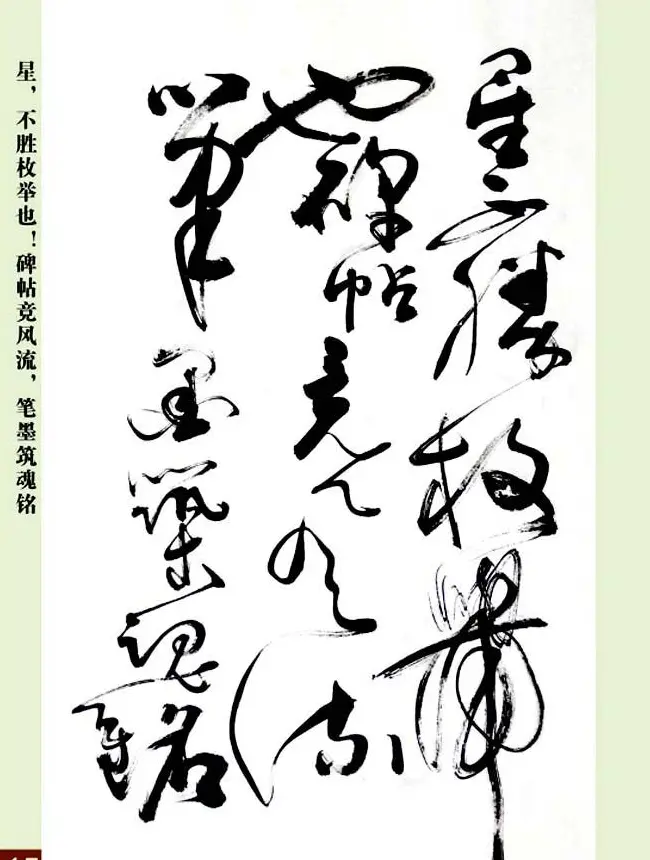 星不胜枚举
也碑帖竞风流
笔墨筑魂铭
星，不胜枚举也！碑帖竞风流，笔墨筑魂铭